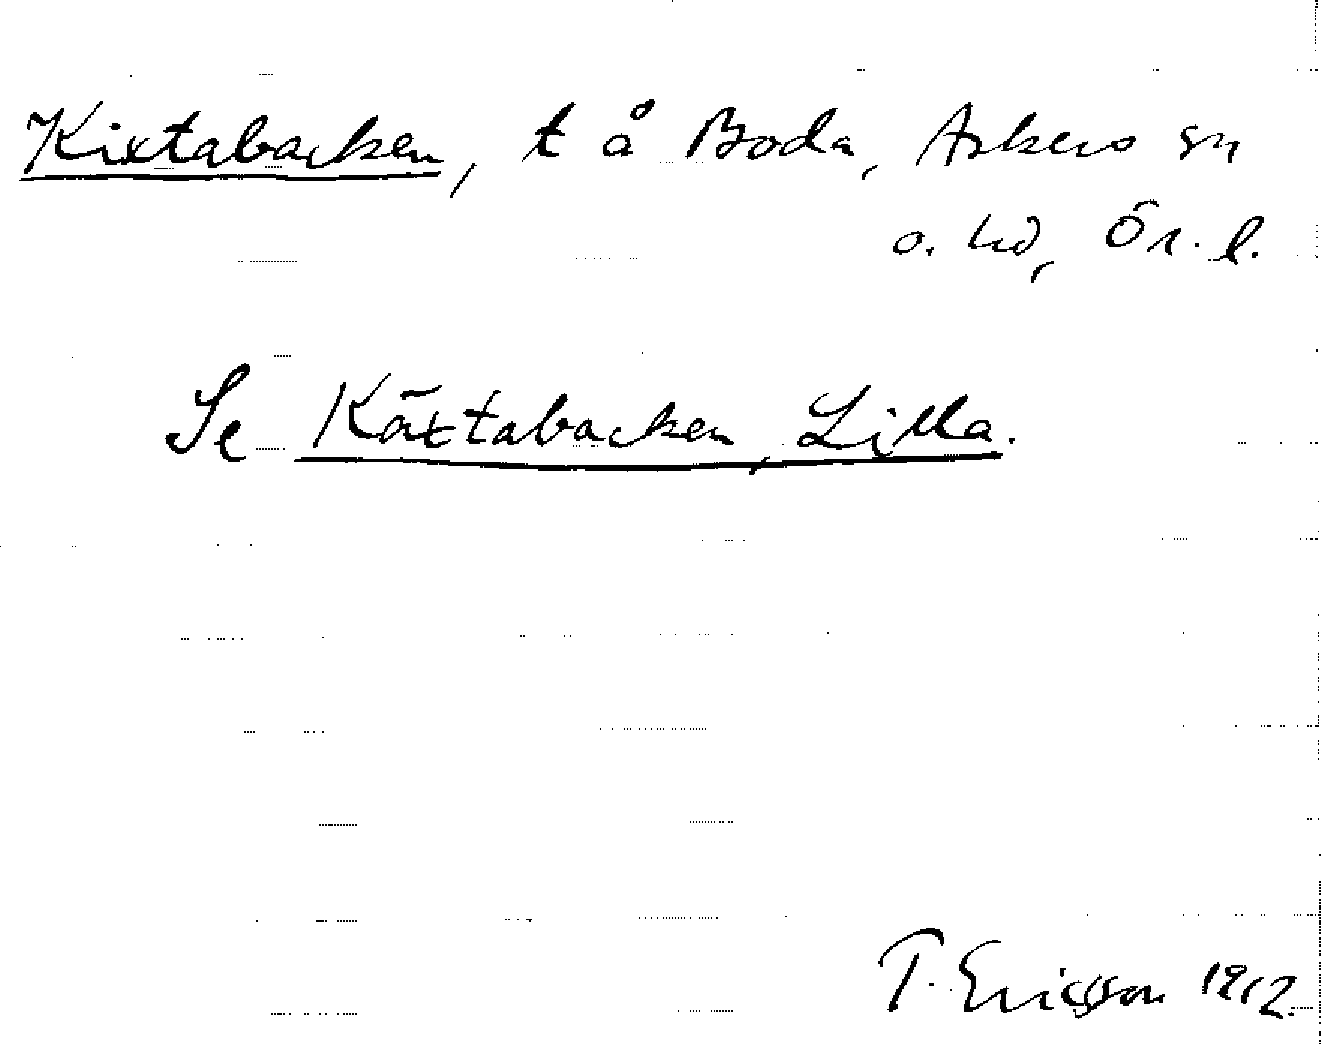 Kixtabacken, t å Boda, Askers sn
o. hd, Ör. l.
Se Käxtabacken, Lilla.
T. Ericsson 1912.